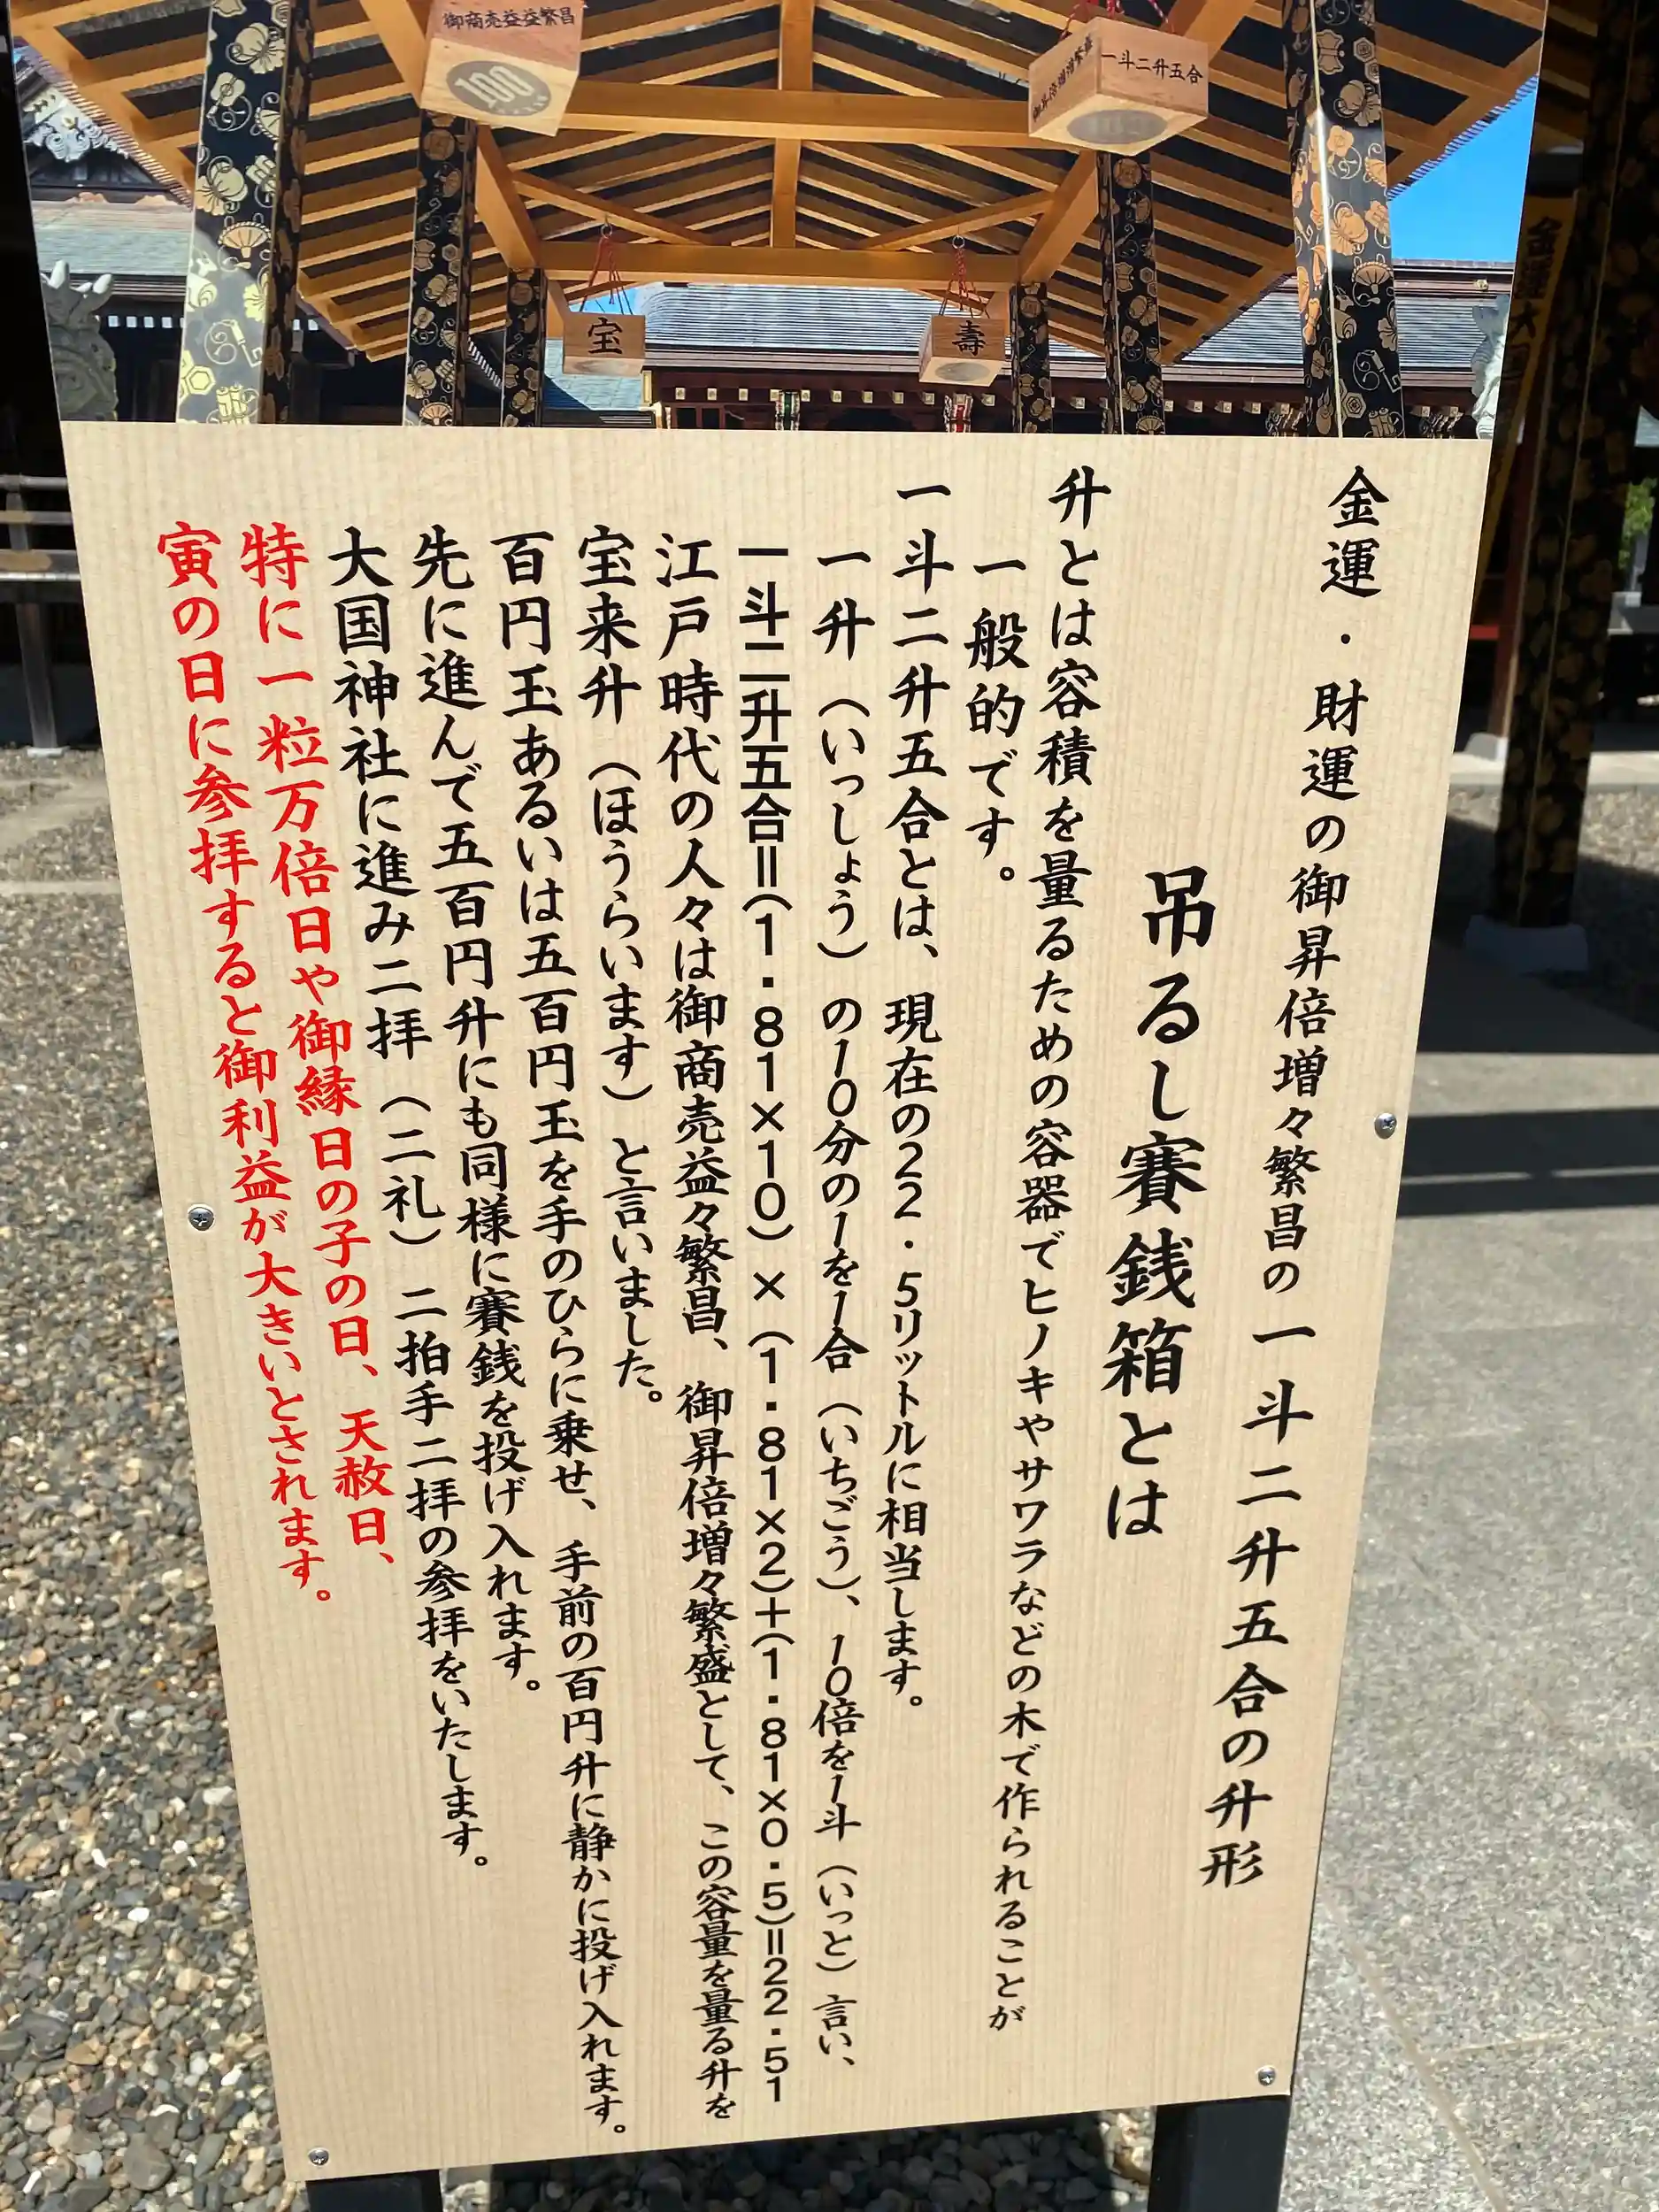 御商売益益繁昌
100
一斗二升五合
宝
壽
金運・財運の御昇倍増々繁昌の一斗二升五合の升形
吊るし賽銭箱とは
升とは容積を量るための容器でヒノキやサワラなどの木で作られることが
一般的です。
一斗二升五合とは、現在の22.5リットルに相当します。
一升(いっしょう)の10分の1を1合(いちごう)、10倍を1斗(いっと)言い、
一斗二升五合=(1.81×10)×(1.81×2)+(1.81×0.5)=22.51
江戸時代の人々は御商売益々繁昌、御昇倍増々繁盛として、この容量を量る升を
宝来升(ほうらいます)と言いました。
百円玉あるいは五百円玉を手のひらに乗せ、手前の百円升に静かに投げ入れます。
先に進んで五百円升にも同様に賽銭を投げ入れます。
大国神社に進み二拝(二礼)二拍手二拝の参拝をいたします。
特に一粒万倍日や御縁日の子の日、天赦日、
寅の日に参拝すると御利益が大きいとされます。